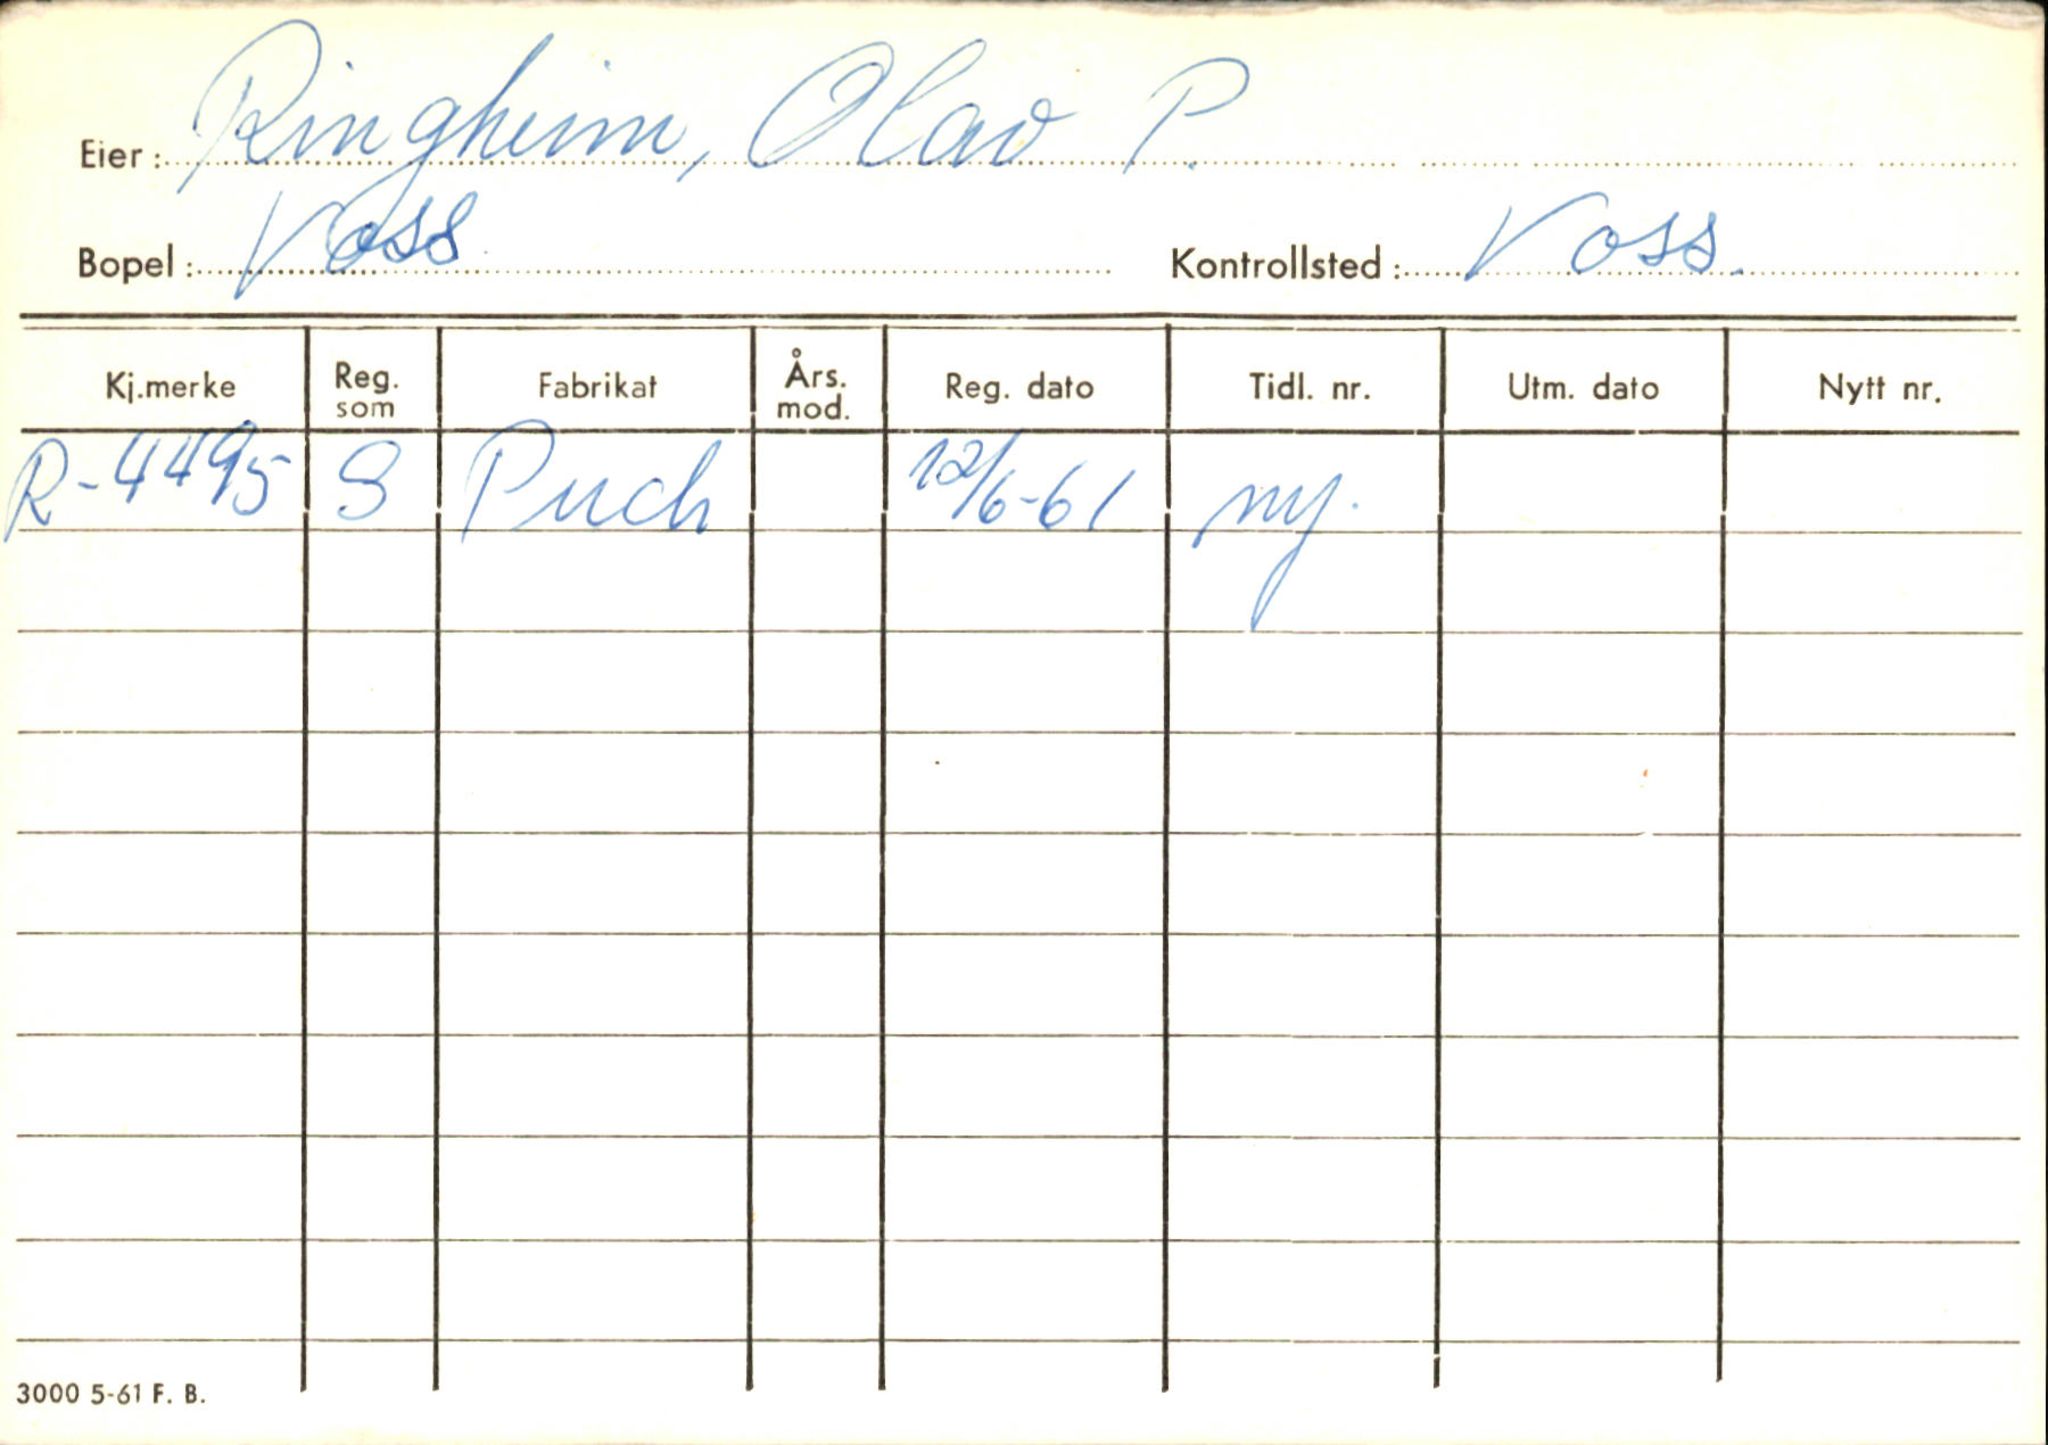 Eier: Ringheim, Olav P.
Bopel: Voss Kontrollsted: Voss.
Kj.merke Reg. som Fabrikat Års. mod. Reg. dato Tidl. nr. Utm. dato Nytt nr.
R-4495 S Puch 12/6-61 ny.
3000 5-61 F. B.